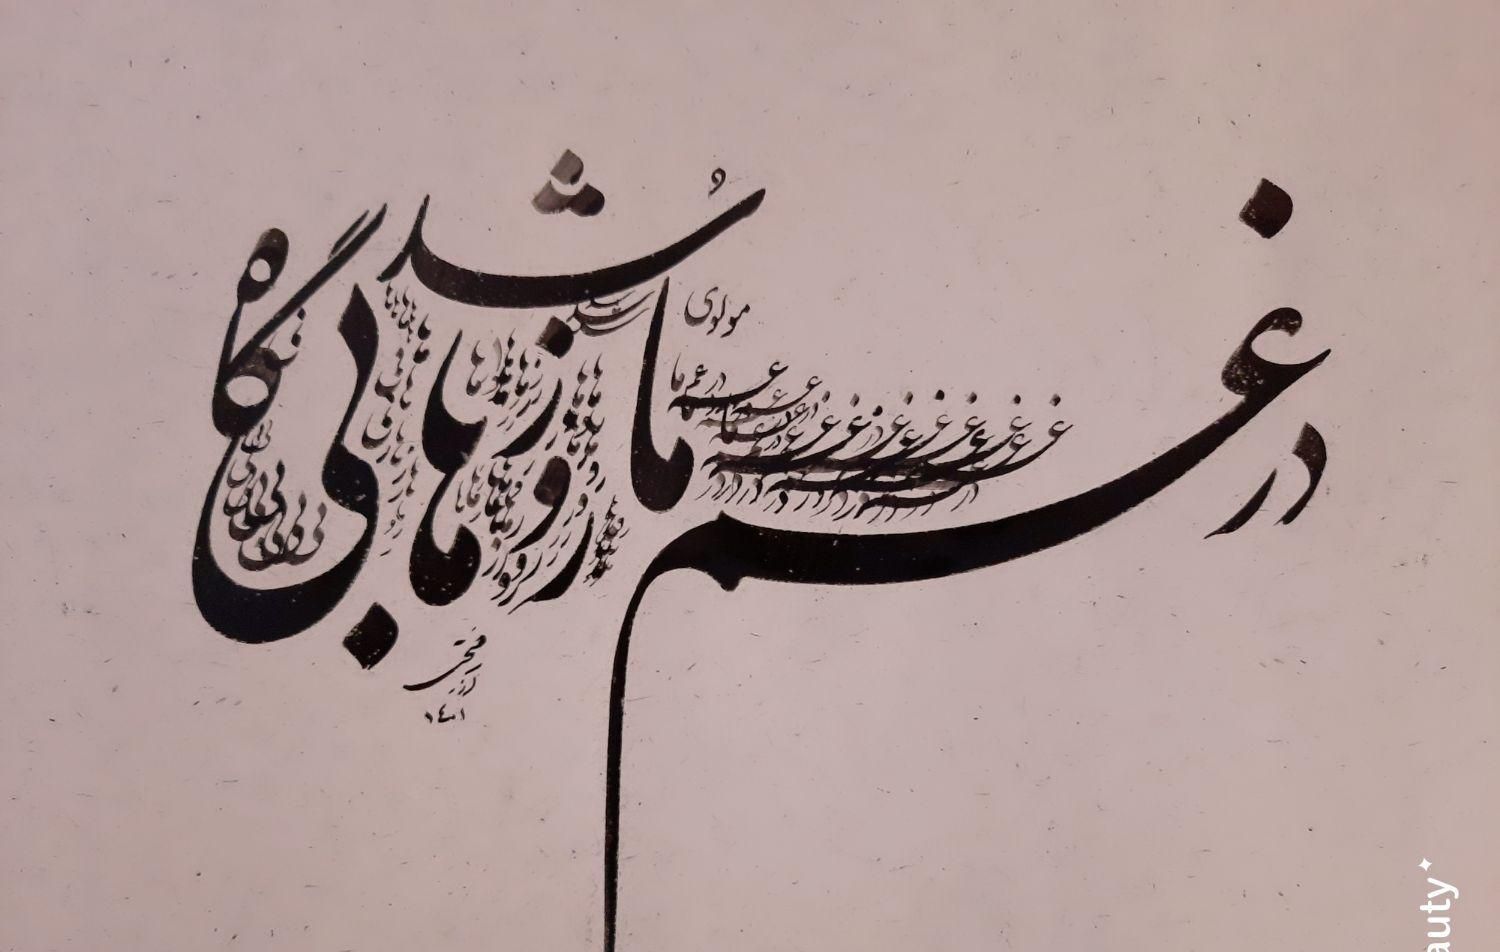 در غم ما روزها بی‌گاه شد
مولوی
فتحی
آذر
۱۴۰۱
auty